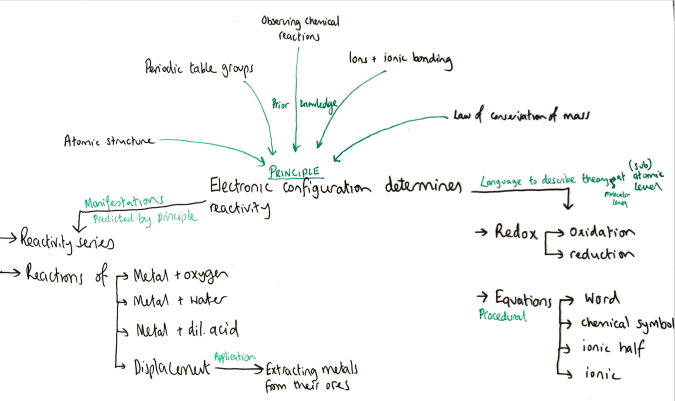 Observing chemical
reactions
Periodic table groups
Ions + ionic bonding
Prior knowledge
Atomic structure
Law of conservation of mass
PRINCIPLE
Electronic configuration determines
reactivity
Manifestations
Predicted by principle
Language to describe theory at (sub)
atomic
level
molecular
level
→ Reactivity series
→ Reactions of → Metal + oxygen
→ Metal + water
→ Metal + dil. acid
→ Displacement
Application
→ Extracting metals
from their ores
→ Redox → oxidation
→ reduction
→ Equations → Word
Procedural
→ chemical symbol
→ ionic half
→ ionic